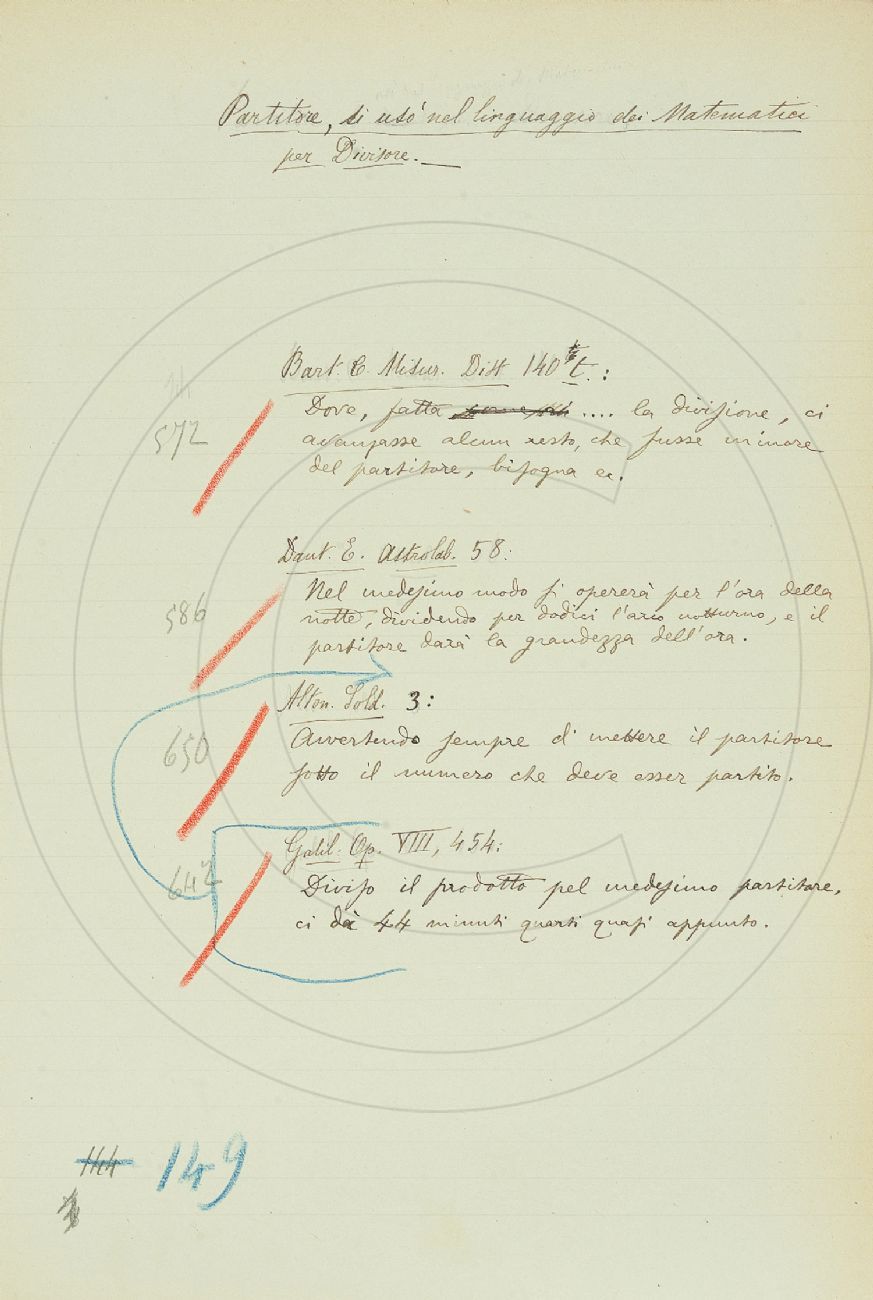 Partitore, si usò nel linguaggio dei Matematici
per Divisore.
Bart. C. Misur. Dist. 140 t.:
572
Dove, fatta .... la divisione, ci
avanzasse alcun resto, che fusse minore
del partitore, bisogna ec.
Dant. E. Astrolab. 58:
586
Nel medesimo modo si opererà per l'ora della
notte, dividendo per dodici l'arco notturno, e il
partitore darà la grandezza dell'ora.
Alton. Sold. 3:
650
Avvertendo sempre di mettere il partitore
sotto il numero che deve esser partito.
Galil. Op. VIII, 454:
642
Diviso il prodotto pel medesimo partitore,
ci dà 44 minuti quarti quasi appunto.
144 149